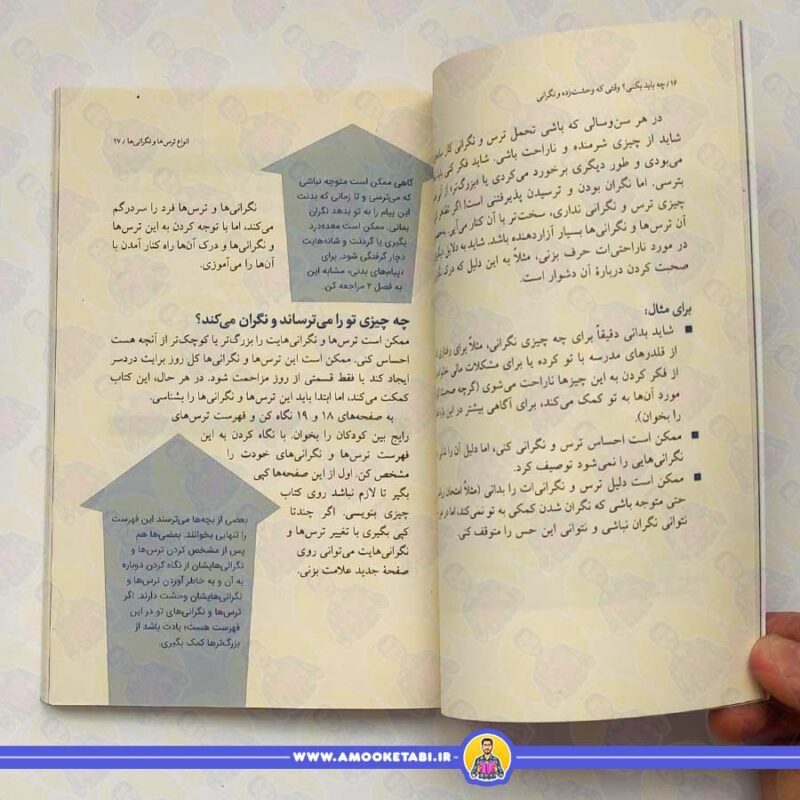 ۱۶/ چه باید بکنی؟ وقتی که وحشت‌زده و نگرانی
در هر سن‌وسالی که باشی تحمل ترس و نگرانی کار
شاید از چیزی شرمنده و ناراحت باشی. شاید فکر کنی
می‌بودی و طور دیگری برخورد می‌کردی یا «بزرگ‌تر» از
بترسی. اما نگران بودن و ترسیدن پذیرفتنی است! اگر
چیزی ترس و نگرانی نداری، سخت‌تر با آن کنار می‌آیی.
آن ترس‌ها و نگرانی‌ها بسیار آزاردهنده باشد. شاید به دلایل
در مورد ناراحتی‌ات حرف بزنی، مثلاً به این دلیل که درک
صحبت کردن دربارهٔ آن دشوار است.
برای مثال:
■ شاید بدانی دقیقاً برای چه چیزی نگرانی، مثلاً برای
از قلدرهای مدرسه با تو کرده یا برای مشکلات مالی
از فکر کردن به این چیزها ناراحت می‌شوی (گرچه صحبت
مورد آن‌ها به تو کمک می‌کند، برای آگاهی بیشتر در این
را بخوان).
■ ممکن است احساس ترس و نگرانی کنی، اما دلیل آن را
نگرانی‌هایی را نمی‌شود توصیف کرد.
■ ممکن است دلیل ترس و نگرانی‌ات را بدانی (مثلاً امتحان
حتی متوجه باشی که نگران شدن کمکی به تو نمی‌کند، اما
نتوانی نگران نباشی و نتوانی این حس را متوقف کنی.
انواع ترس‌ها و نگرانی‌ها / ۱۷
گاهی ممکن است متوجه نباشی
که می‌ترسی و تا زمانی که بدنت
این پیام را به تو بدهد نگران
بمانی. ممکن است معده‌درد
بگیری یا گردنت و شانه‌هایت
دچار گرفتگی شود. برای
«پیام‌های بدنی» مشابه این
به فصل ۲ مراجعه کن.
نگرانی‌ها و ترس‌ها فرد را سردرگم
می‌کند، اما با توجه کردن به این ترس‌ها
و نگرانی‌ها و درک آن‌ها راه کنار آمدن با
آن‌ها را می‌آموزی.
چه چیزی تو را می‌ترساند و نگران می‌کند؟
ممکن است ترس‌ها و نگرانی‌هایت را بزرگ‌تر یا کوچک‌تر از آنچه هست
احساس کنی. ممکن است این ترس‌ها و نگرانی‌ها کل روز برایت دردسر
ایجاد کند یا فقط قسمتی از روز مزاحمت شود. در هر حال، این کتاب
کمکت می‌کند، اما ابتدا باید این ترس‌ها و نگرانی‌ها را بشناسی.
به صفحه‌های ۱۸ و ۱۹ نگاه کن و فهرست ترس‌های
رایج بین کودکان را بخوان. با نگاه کردن به این
فهرست ترس‌ها و نگرانی‌های خودت را
مشخص کن. اول از این صفحه‌ها کپی
بگیر تا لازم نباشد روی کتاب
چیزی بنویسی. اگر چندتا
کپی بگیری با تغییر ترس‌ها و
نگرانی‌هایت می‌توانی روی
صفحهٔ جدید علامت بزنی.
بعضی از بچه‌ها می‌ترسند این فهرست
را تنهایی بخوانند. بعضی‌ها هم
پس از مشخص کردن ترس‌ها و
نگرانی‌هایشان از نگاه کردن دوباره
به آن و به خاطر آوردن ترس‌ها و
نگرانی‌هایشان وحشت دارند. اگر
ترس‌ها و نگرانی‌های تو در این
فهرست هست؛ یادت باشد از
بزرگ‌ترها کمک بگیری.
WWW.AMOOKETABI.IR